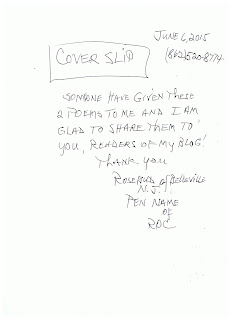 JUNE 6, 2015
(862) 520-8774
COVER SLIP
SOMEONE HAVE GIVEN THESE
2 POEMS TO ME AND I AM
GLAD TO SHARE THEM TO
YOU, READERS OF MY BLOG!
THANK YOU
ROSEBUDS of Belleville
N.J.
PEN NAME
OF
RDC